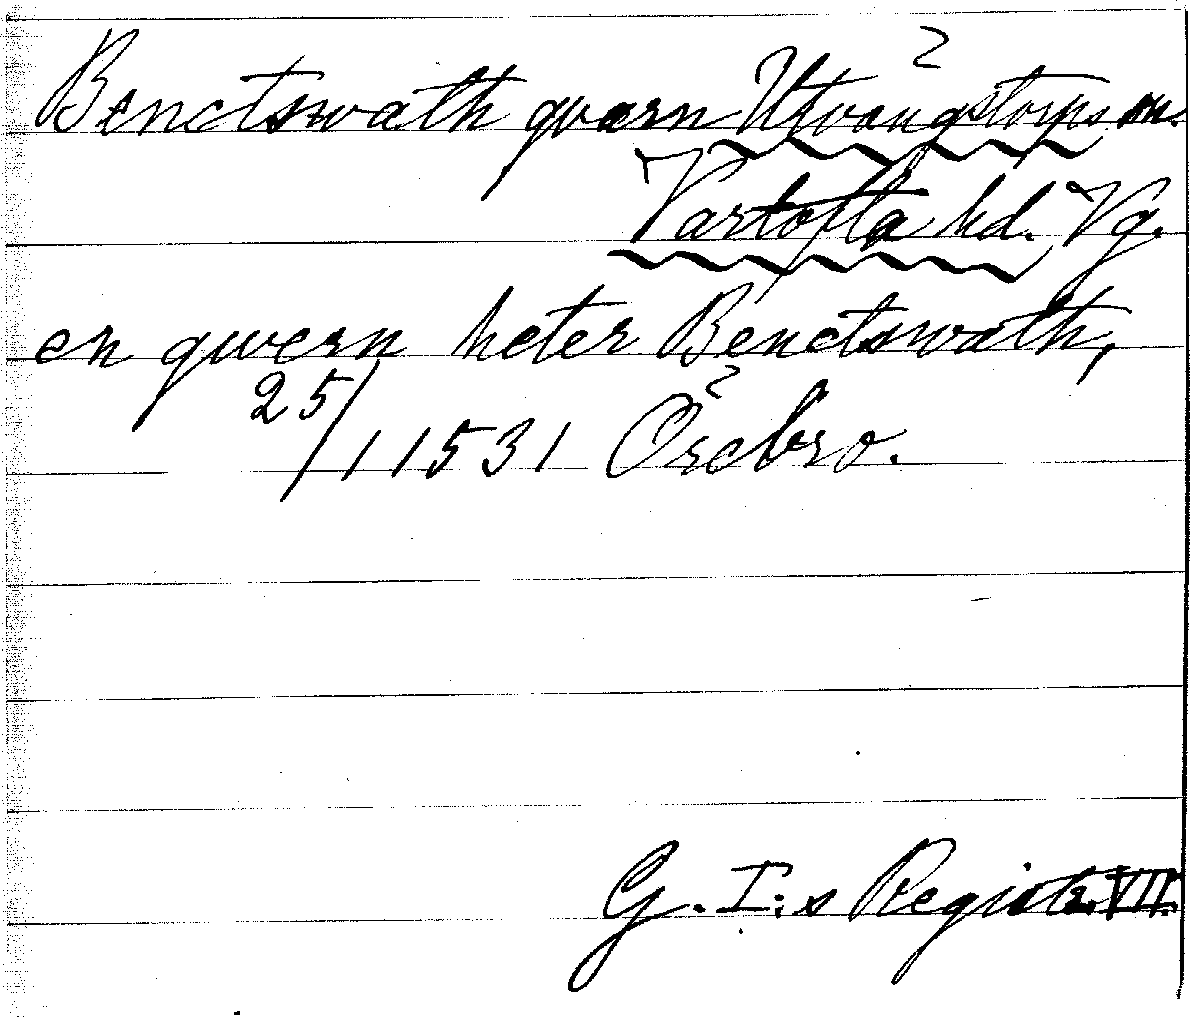 Benctswath qvarn Utvängstorps sn.
Vartofta hd. Vg.
en qwern heter Benctswath,
25/1 1531 Örebro.
G. I:s Registr. VII.